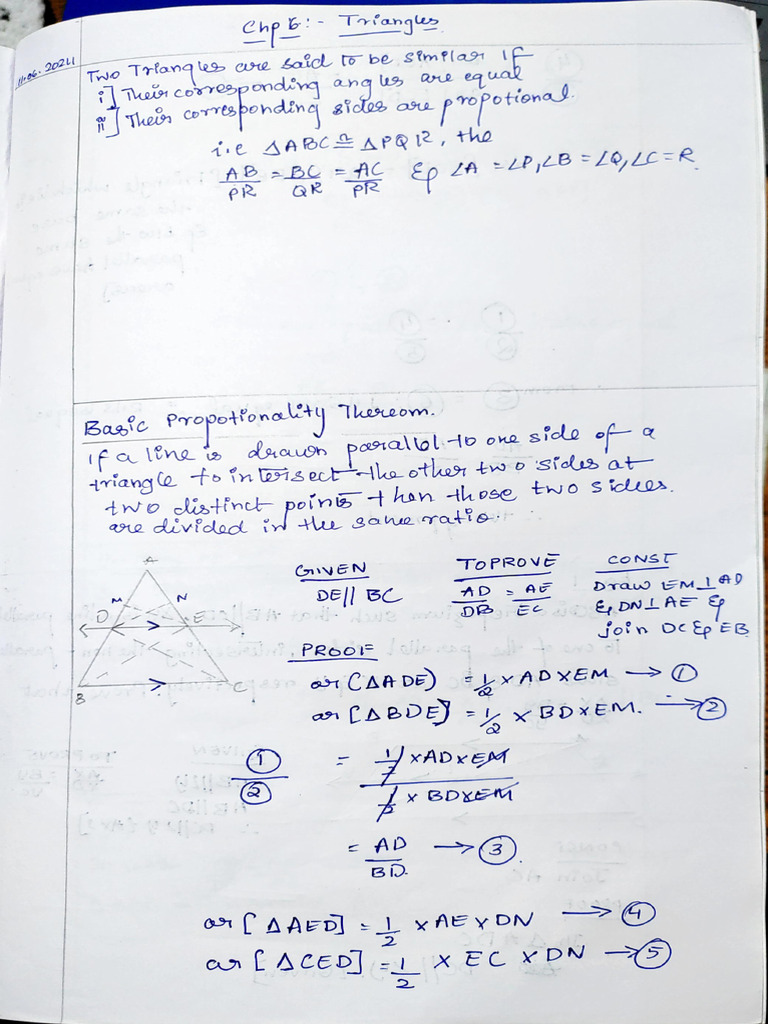 Chp 6:- Triangles
11.06.2024
Two Triangles are said to be similar if
i] Their corresponding angles are equal
ii] Their corresponding sides are propotional.
i.e △ABC ≅ △PQR, the
AB/PR = BC/QR = AC/PR & ∠A = ∠P, ∠B = ∠Q, ∠C = R.
Basic Propotionality Thereom.
if a line is drawn parallel to one side of a
triangle to intersect the other two sides at
two distinct points then those two sides.
are divided in the same ratio.
A
M N
D E
B C
GIVEN
DE || BC
TOPROVE
AD/DB = AE/EC
CONST
Draw EM ⊥ AD
& DN ⊥ AE &
join DC & EB.
PROOF
ar (△ADE) = 1/2 × AD × EM → ①
ar [△BDE] = 1/2 × BD × EM. → ②
①/② = 1/2 × AD × EM / 1/2 × BD × EM
= AD/BD. → ③.
ar [△AED] = 1/2 × AE × DN → ④
ar [△CED] = 1/2 × EC × DN → ⑤